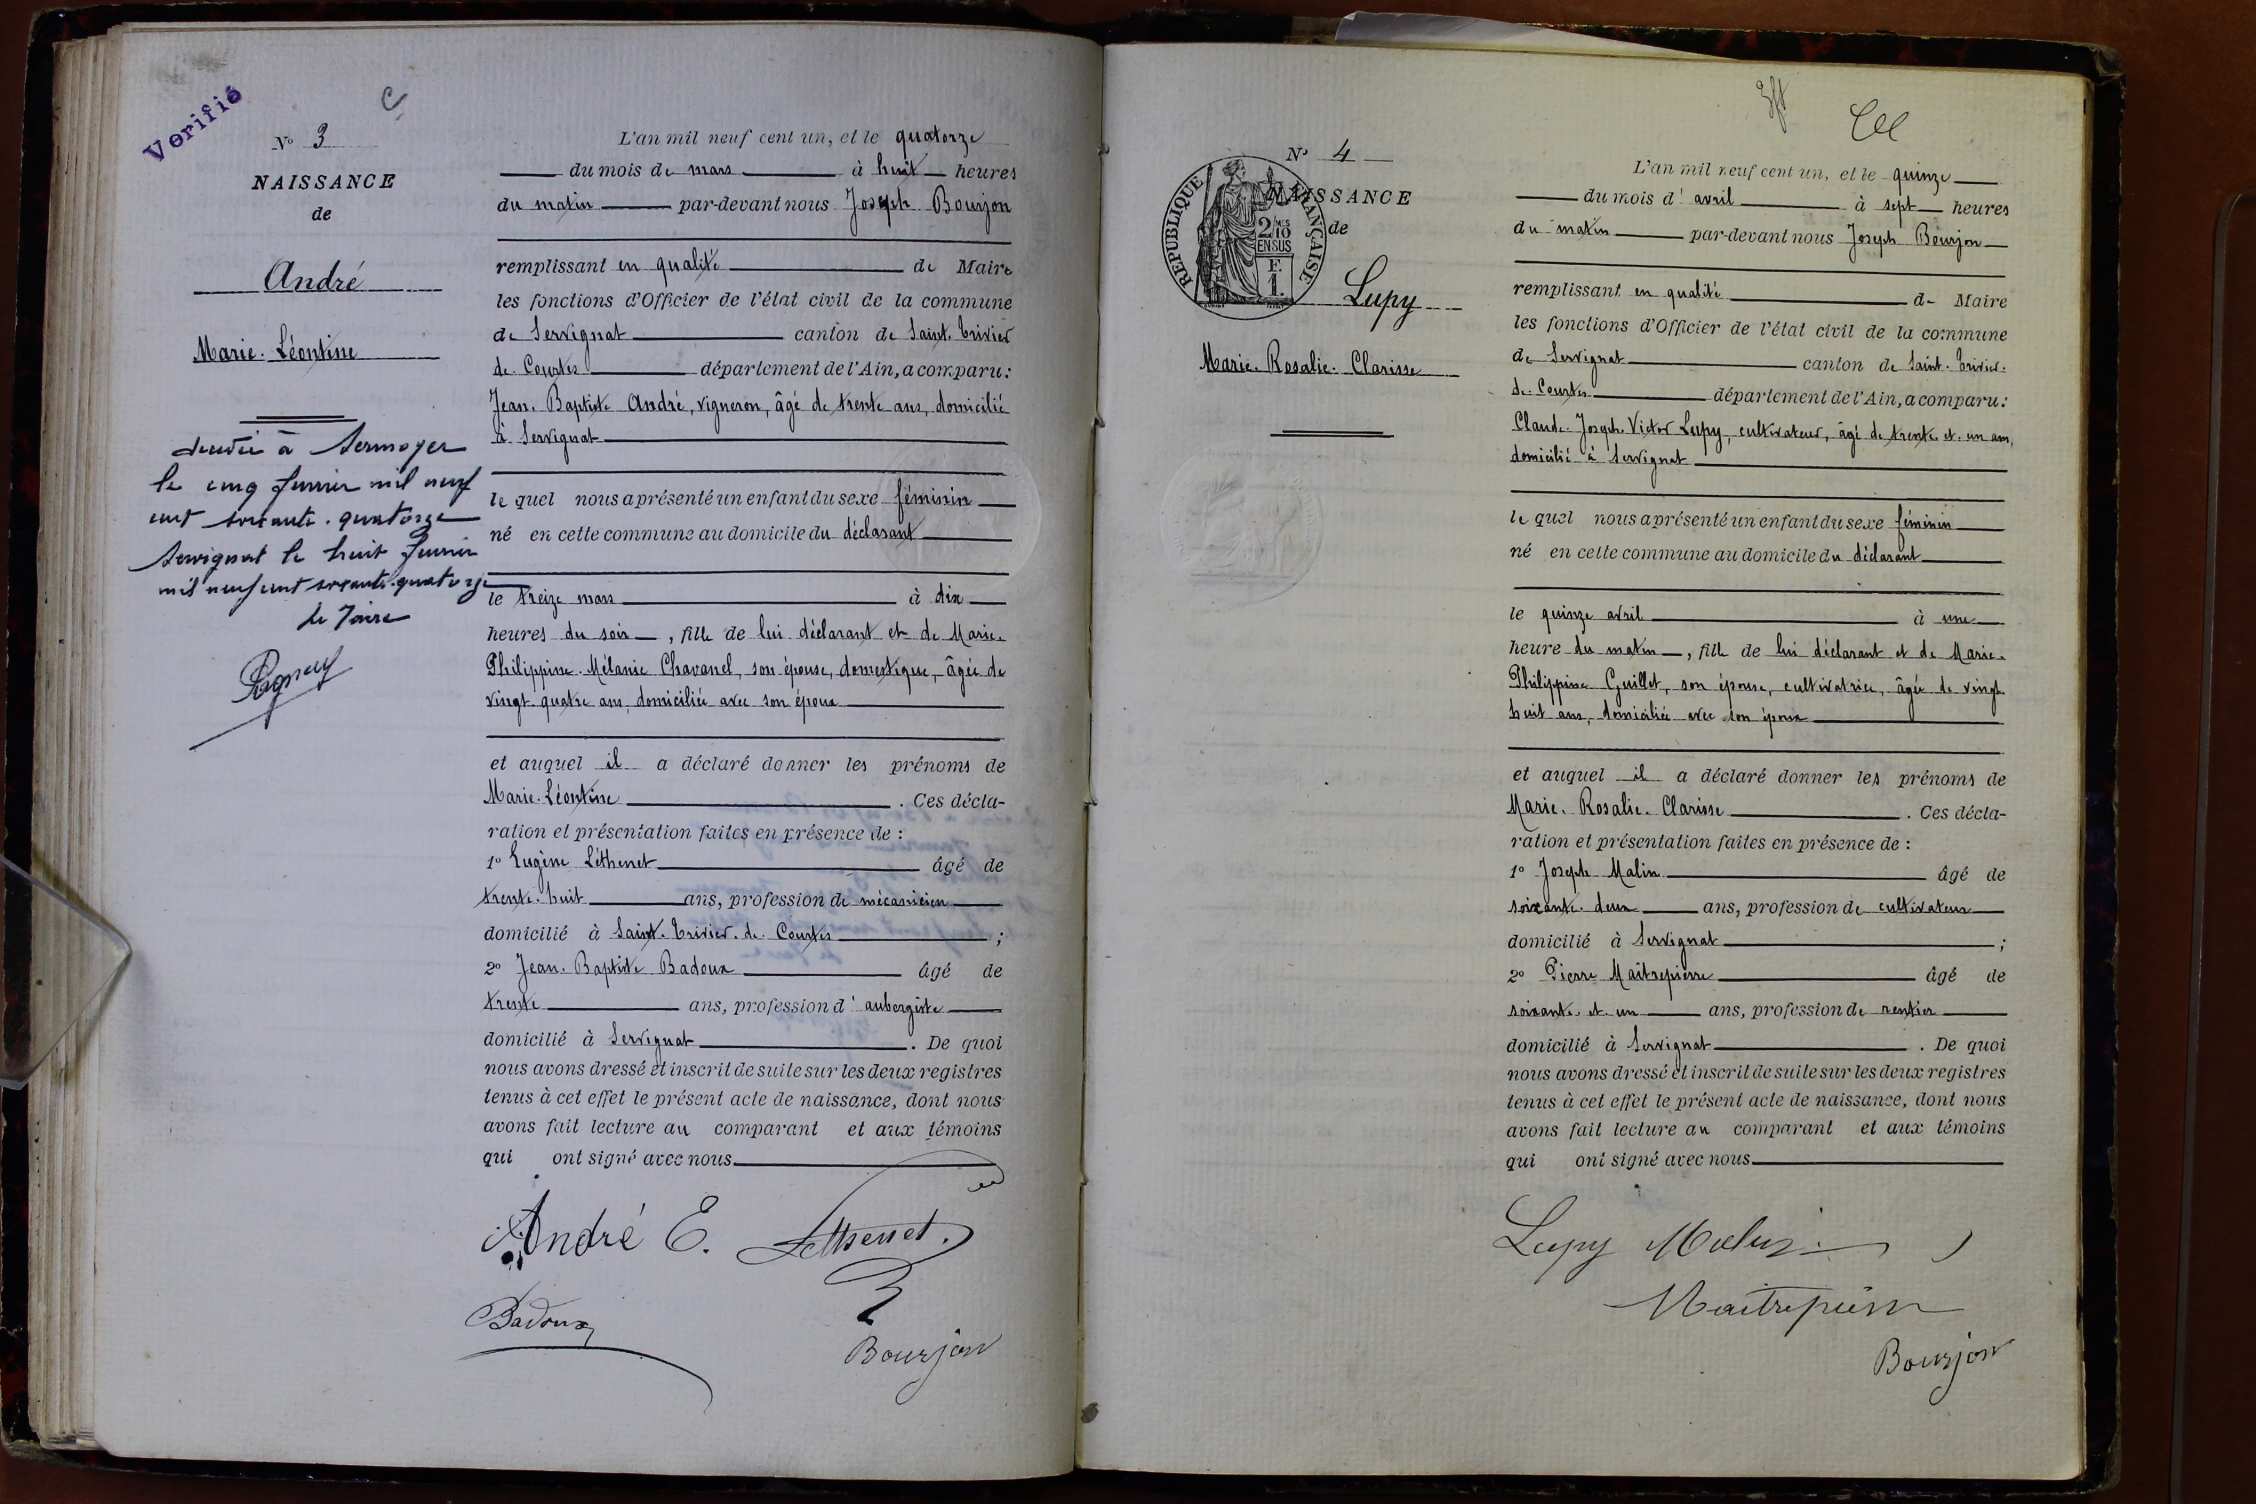 Verifié
C
Nº 3
NAISSANCE
de
André
Marie. Léontine
décédée à Sermoyer
le cinq février mil neuf
cent soixante. quatorze
Servignat le huit février
mil neuf cent soixante. quatorze
Le Maire
L'an mil neuf cent un, et le quatorze
du mois de mars à huit heures
du matin par-devant nous Joseph Bourjon
remplissant en qualité de Maire
les fonctions d'Officier de l'état civil de la commune
de Servignat canton de Saint. Trivier
de. Courtes département de l'Ain, a comparu:
Jean. Baptiste André, vigneron, âgé de trente ans, domicilié
à Servignat
le quel nous a présenté un enfant du sexe féminin
né en cette commune au domicile du déclarant
le treize mars à dix
heures du soir, fille de lui déclarant et de Marie.
Philippine. Mélanie Chavanel, son épouse, domestique, âgée de
vingt. quatre ans, domiciliée avec son époux
et auquel il a déclaré donner les prénoms de
Marie. Léontine. Ces décla-
ration et présentation faites en présence de :
1º Eugène Léthenet âgé de
trente. huit ans, profession de mécanicien
domicilié à Saint. Trivier. de. Courtes ;
2º Jean. Baptiste Badoux âgé de
trente ans, profession d'aubergiste
domicilié à Servignat. De quoi
nous avons dressé et inscrit de suite sur les deux registres
tenus à cet effet le présent acte de naissance, dont nous
avons fait lecture au comparant et aux témoins
qui ont signé avec nous
André E. Lethenet.
Badoux
Bourjon
Nº 4
NAISSANCE
de
RÉPUBLIQUE FRANÇAISE
2/10 MES
EN SUS
F.
1.
Lupy
Marie. Rosalie. Clarisse
L'an mil neuf cent un, et le quinze
du mois d'avril à sept heures
du matin par-devant nous Joseph Bourjon
remplissant en qualité de Maire
les fonctions d'Officier de l'état civil de la commune
de Servignat canton de Saint. Trivier.
de. Courtes département de l'Ain, a comparu:
Claude. Joseph Victor Lupy, cultivateur, âgé de trente. et. un ans,
domicilié à Servignat
le quel nous a présenté un enfant du sexe féminin
né en cette commune au domicile du déclarant
le quinze avril à une
heure du matin, fille de lui déclarant et de Marie.
Philippine Guillet, son épouse, cultivatrice, âgée de vingt.
huit ans, domiciliée avec son époux
et auquel il a déclaré donner les prénoms de
Marie. Rosalie. Clarisse. Ces décla-
ration et présentation faites en présence de :
1º Joseph Malin âgé de
soixante. deux ans, profession de cultivateur
domicilié à Servignat ;
2º Pierre Maîtrepierre âgé de
soixante. et. un ans, profession de rentier
domicilié à Servignat. De quoi
nous avons dressé et inscrit de suite sur les deux registres
tenus à cet effet le présent acte de naissance, dont nous
avons fait lecture au comparant et aux témoins
qui ont signé avec nous
Lupy Malin
Maitrepierre
Bourjon